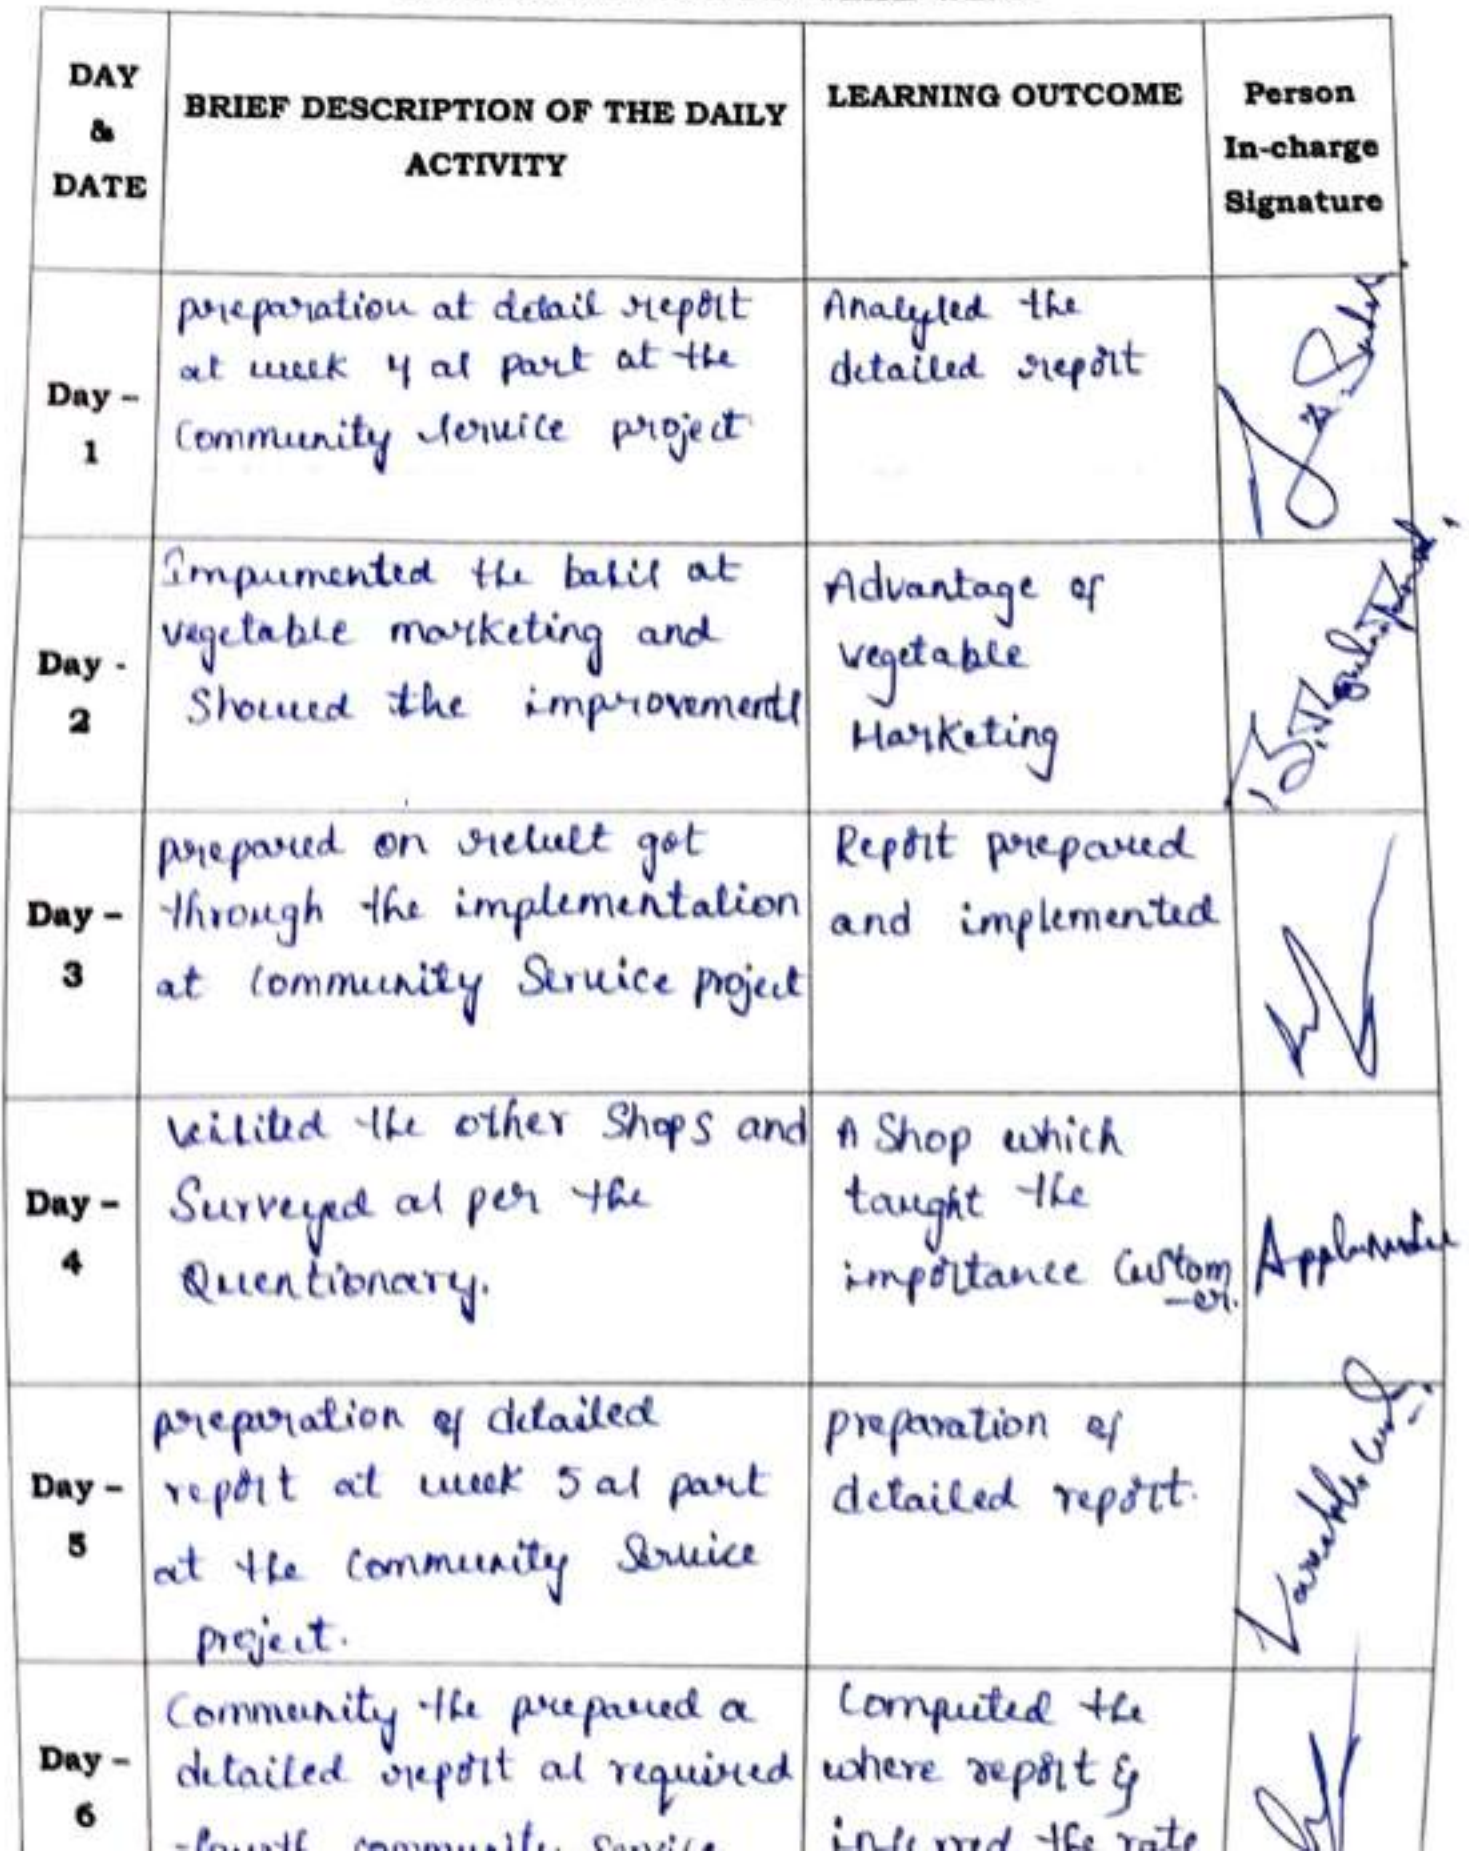 DAY
&
DATE
BRIEF DESCRIPTION OF THE DAILY
ACTIVITY
LEARNING OUTCOME
Person
In-charge
Signature
Day –
1
preparation at detail report
at week 4 as part at the
Community service project
Analysed the
detailed report
Day -
2
Impumented the basis at
vegetable marketing and
Showed the improvements
Advantage of
vegetable
Marketing
Day –
3
prepared on result got
through the implementation
at Community Service project
Report prepared
and implemented
Day –
4
visited the other Shops and
Surveyed as per the
Quentionary.
A Shop which
taught the
importance Custom
-er.
Day –
5
preparation of detailed
report at week 5 as part
at the Community Service
project.
preparation of
detailed report.
Day –
6
Community the prepared a
detailed report as required
community Service
Computed the
where report &
the rate